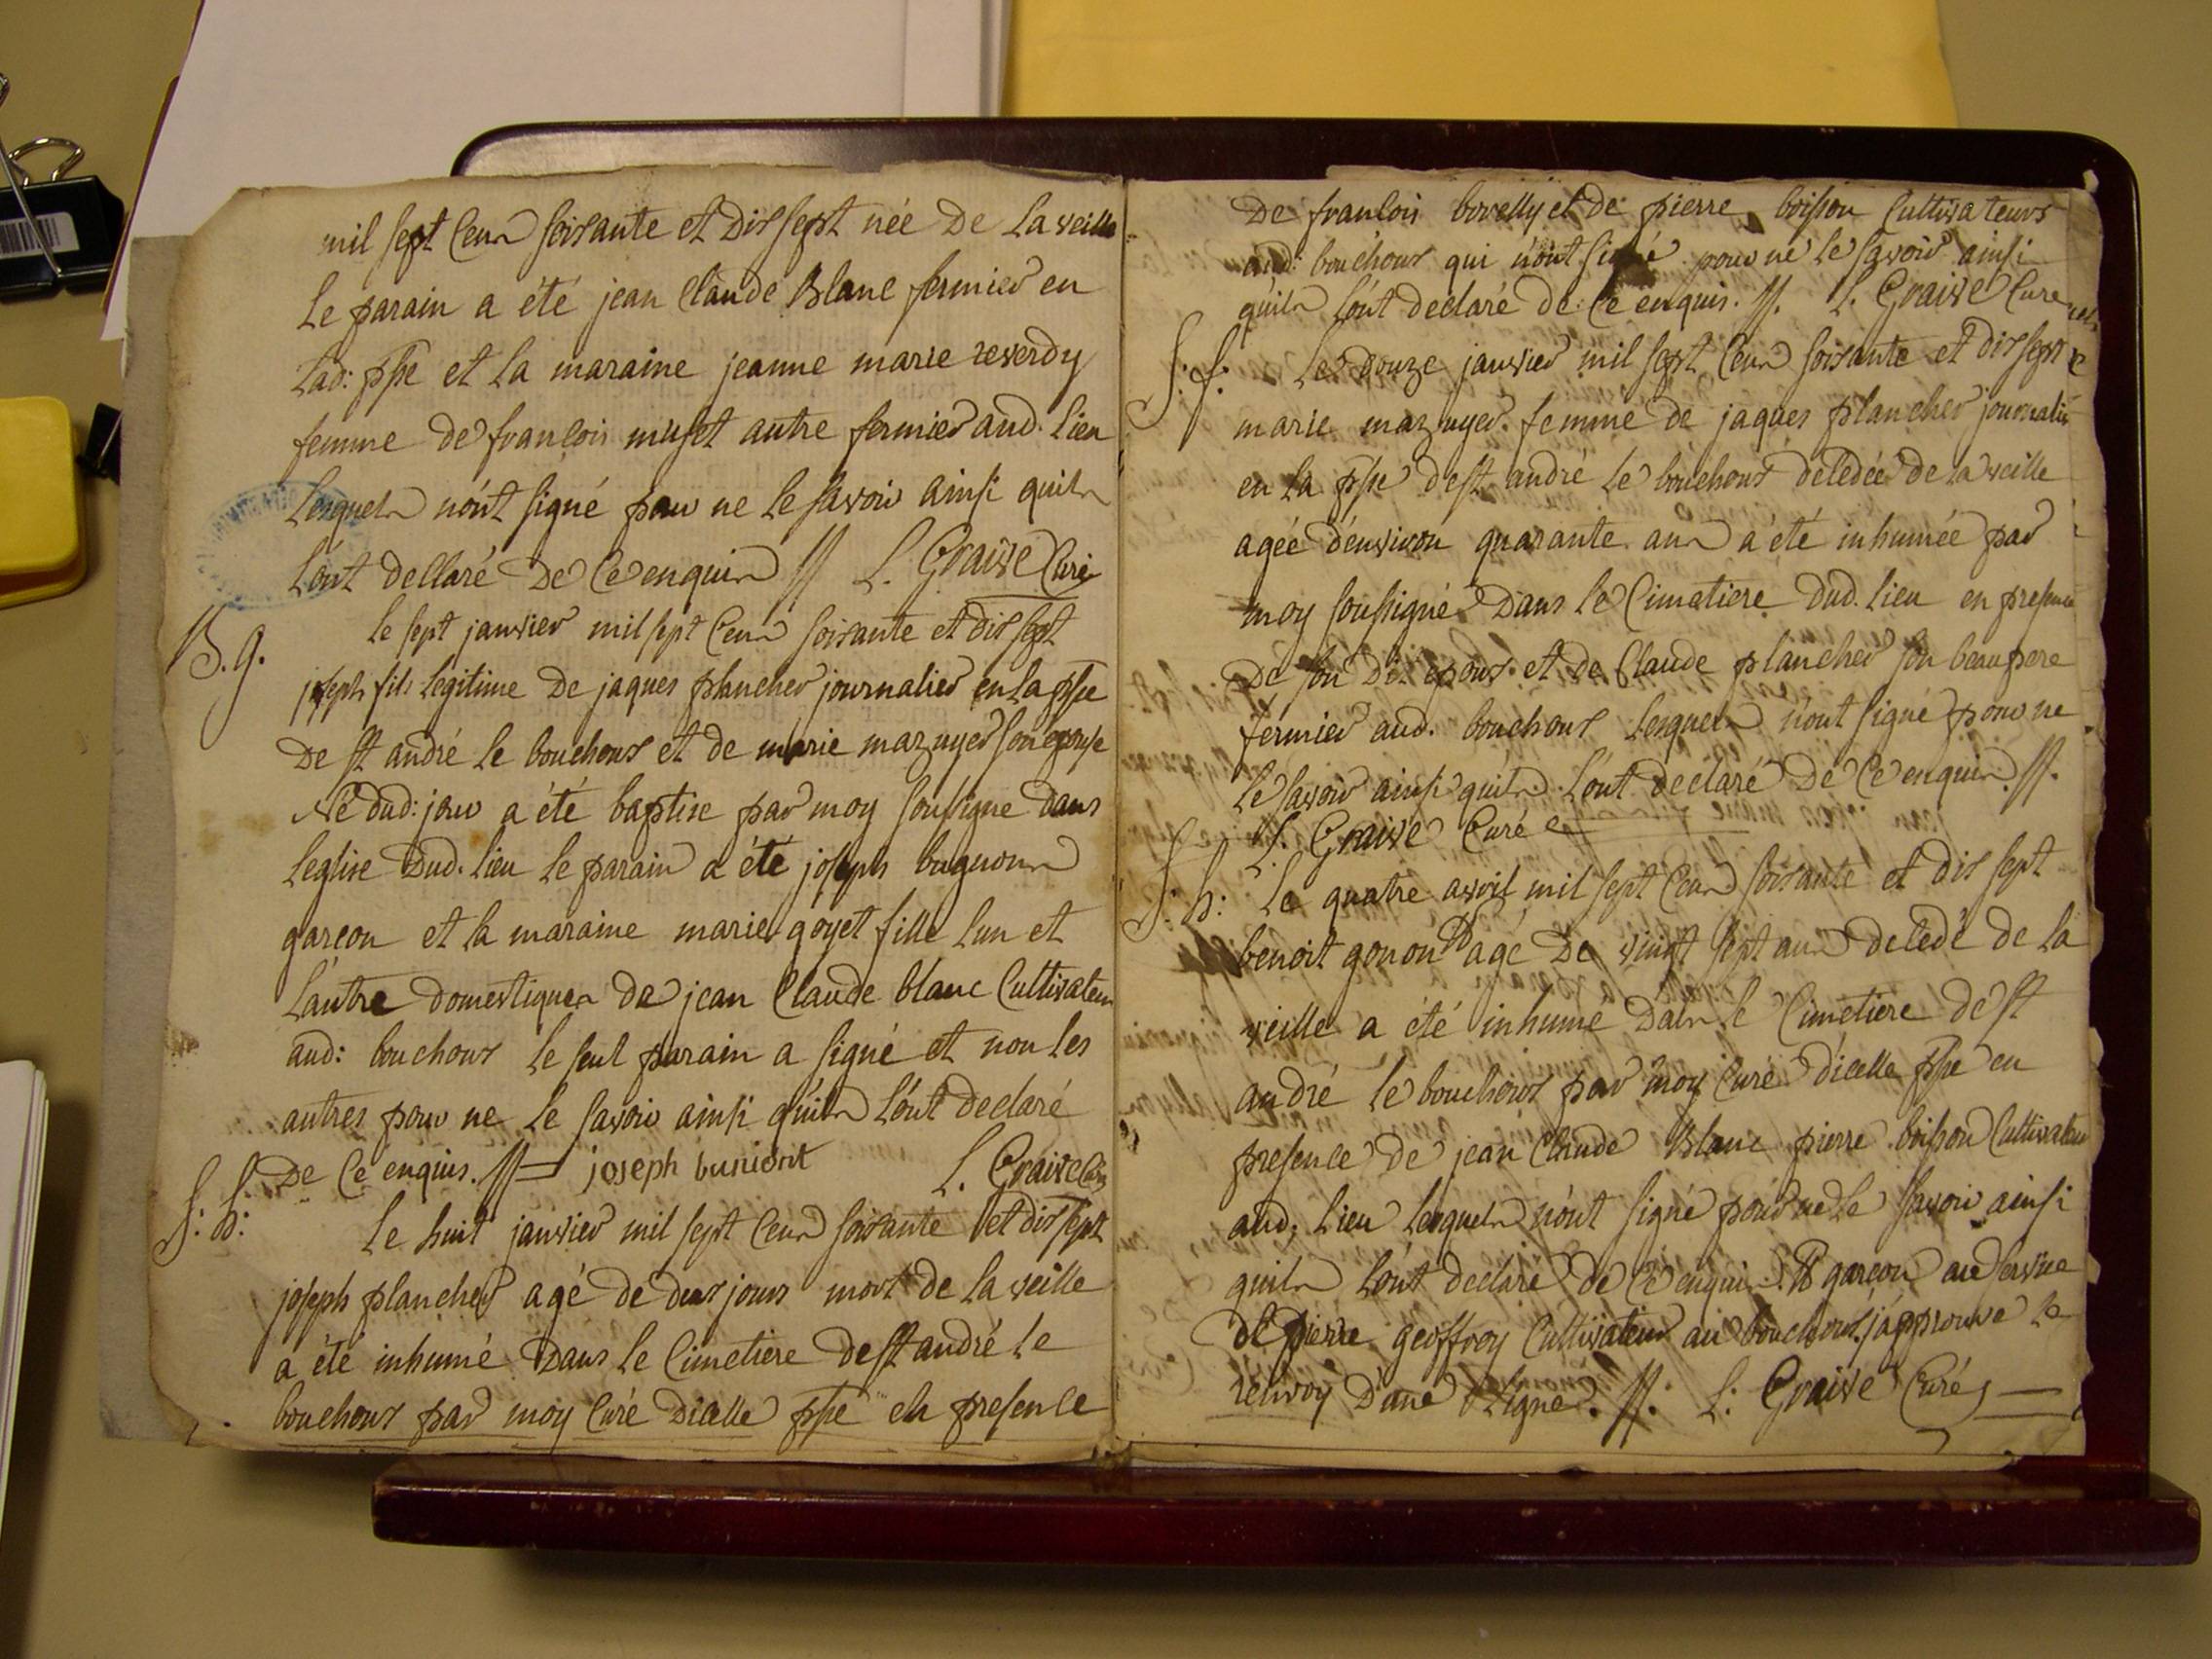 mil sept cens soixante et dix sept née de la veille
le parain a été jean claude Blanc fermier en
lad: psse et la maraine jeanne marie reverdy
femme de francois muset autre fermier aud. lieu
lesquels n'ont signé pour ne le savoir ainsi quils
l'ont declaré de ce enquis // L. Graive Curé
B. g. le sept janvier mil sept cens soixante et dix sept
joseph fils legitime de jaques plancher journalier en la psse
de st andré le bouchoux et de marie mazuyer son epouse
Né dud: jour a été baptisé par moy soussigne dans
leglise dud. lieu le parain a été joseph
garcon et la maraine marie goyet fille lun et
l'autre domestiques de jean claude blanc cultivateur
aud: bouchoux le seul parain a signé et non les
autres pour ne le savoir ainsi quils l'ont declaré
de ce enquis. // joseph L. Graive Curé
S: h: le huit janvier mil sept cens soixante et dix sept
joseph plancher agé de deux jours mort de la veille
a été inhumé dans le cimetiere de st andré le
bouchoux par moy curé dicelle psse en presence
de francois borelly et de pierre boisson cultivateurs
aud: bouchoux qui n'ont signé pour ne le savoir ainsi
quils l'ont declaré de ce enquis. //. L. Graive Curé
S: f: Le douze janvier mil sept cens soixante et dix sept
marie mazuyer femme de jaques plancher journalier
en la psse de st andré le bouchoux decedée de la veille
agée d'environ quarante ans a été inhumée par
moy soussigné dans le cimetiere dud. lieu en presence
de son dit epoux et de claude plancher son beaupere
fermier aud. bouchoux lesquels n'ont signé pour ne
le savoir ainsi quils l'ont declaré de ce enquis //.
L. Graive Curé
S: h: Le quatre avril mil sept cens soixante et dix sept
benoit gonon agé de vingt sept ans decedé de la
veille a été inhumé dans le cimetiere de st
andré le bouchoux par moy curé dicelle psse en
presence de jean claude Blanc pierre boisson cultivateurs
aud: lieu lesquels n'ont signé pour ne le savoir ainsi
quils l'ont declaré de ce enquis. garcon au service
de pierre geoffroy cultivateur au bouchoux j'approuve le
renvoy d'une ligne. //. L: Graive Curé